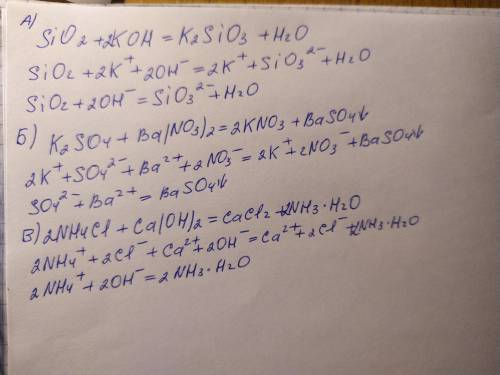 А)
SiO2 + 2KOH = K2SiO3 + H2O
SiO2 + 2K⁺ + 2OH⁻ = 2K⁺ + SiO3²⁻ + H2O
SiO2 + 2OH⁻ = SiO3²⁻ + H2O
Б) K2SO4 + Ba(NO3)2 = 2KNO3 + BaSO4↓
2K⁺ + SO4²⁻ + Ba²⁺ + 2NO3⁻ = 2K⁺ + 2NO3⁻ + BaSO4↓
SO4²⁻ + Ba²⁺ = BaSO4↓
в) 2NH4Cl + Ca(OH)2 = CaCl2 + 2NH3·H2O
2NH4⁺ + 2Cl⁻ + Ca²⁺ + 2OH⁻ = Ca²⁺ + 2Cl⁻ + 2NH3·H2O
2NH4⁺ + 2OH⁻ = 2NH3·H2O